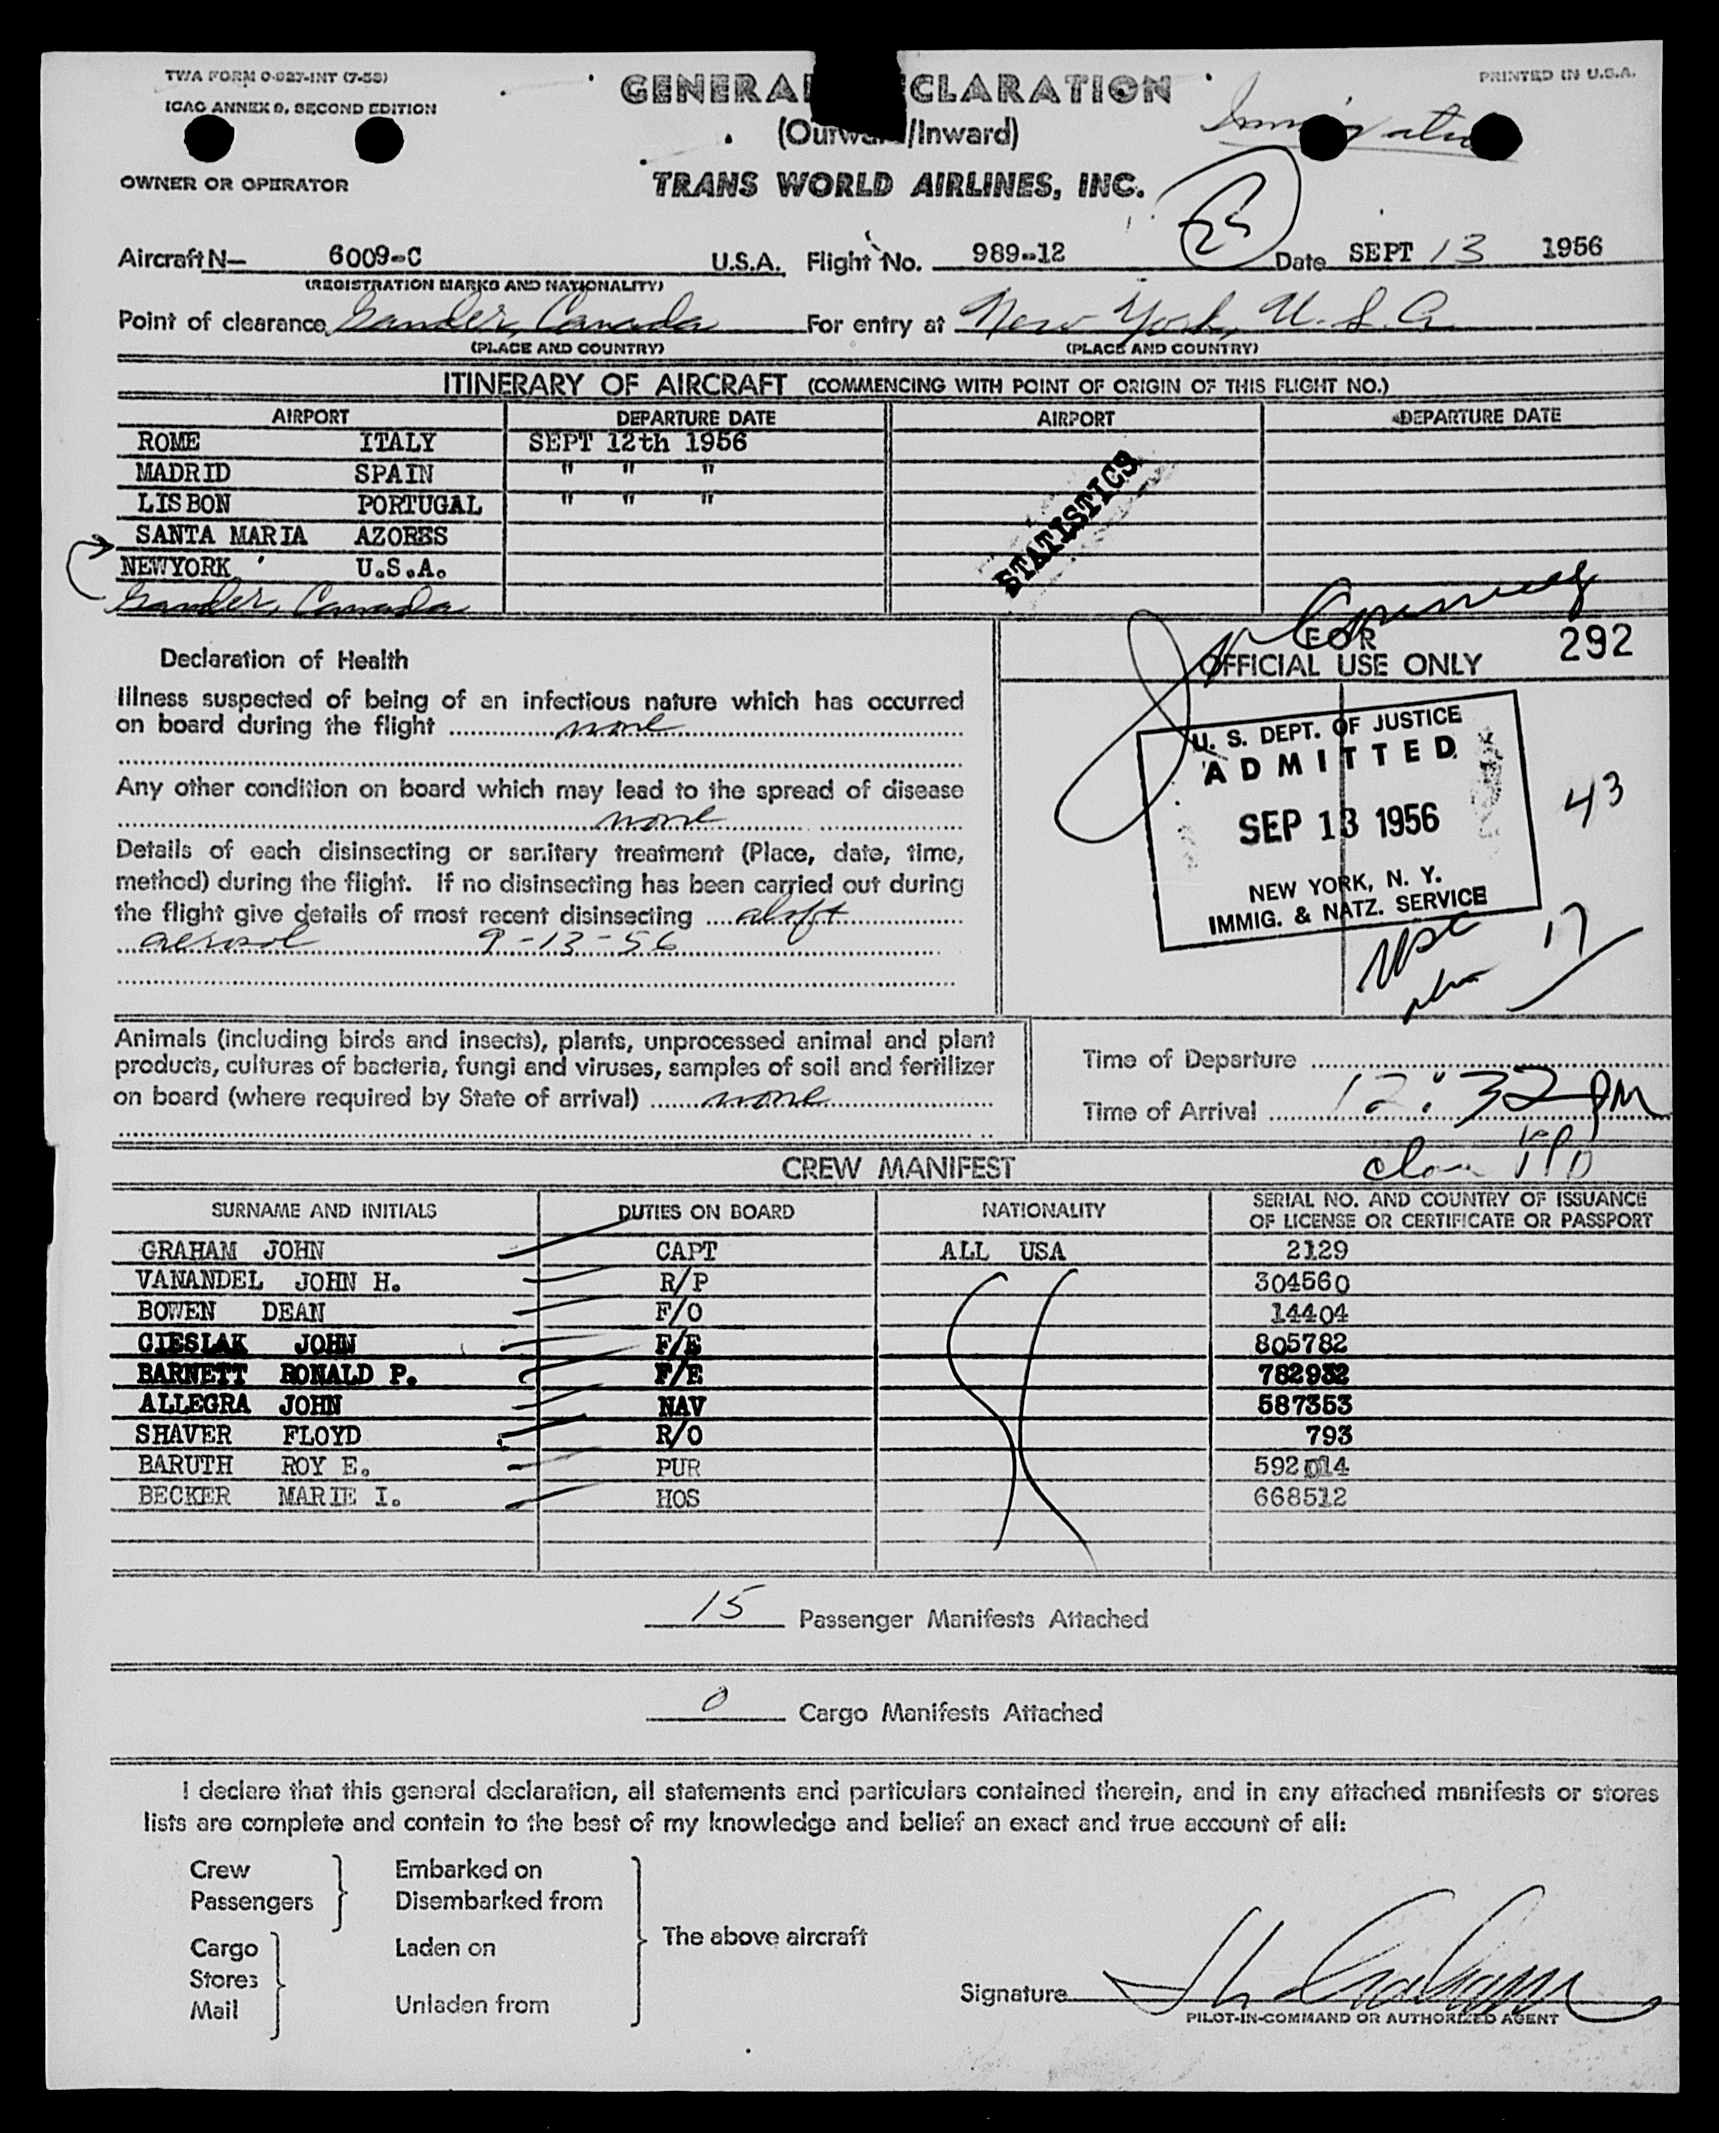 TWA FORM O-927-INT (7-53)
ICAO ANNEX 9, SECOND EDITION
GENERAL DECLARATION
(Outward/Inward)
PRINTED IN U.S.A.
Immigration
OWNER OR OPERATOR
TRANS WORLD AIRLINES, INC.
Aircraft N— 6009-C U.S.A. Flight No. 989-12 Date SEPT 13 1956
(REGISTRATION MARKS AND NATIONALITY)
Point of clearance Gander, Canada For entry at New York, U.S.A.
(PLACE AND COUNTRY) (PLACE AND COUNTRY)
ITINERARY OF AIRCRAFT (COMMENCING WITH POINT OF ORIGIN OF THIS FLIGHT NO.)
AIRPORT DEPARTURE DATE AIRPORT DEPARTURE DATE
ROME ITALY SEPT 12th 1956
MADRID SPAIN " " "
LISBON PORTUGAL " " "
SANTA MARIA AZORES
NEWYORK U.S.A.
Gander, Canada
STATISTICS
Declaration of Health
Illness suspected of being of an infectious nature which has occurred
on board during the flight none
Any other condition on board which may lead to the spread of disease
none
Details of each disinsecting or sanitary treatment (Place, date, time,
method) during the flight. If no disinsecting has been carried out during
the flight give details of most recent disinsecting
aerosol 9-13-56
FOR
OFFICIAL USE ONLY
292
U. S. DEPT. OF JUSTICE
ADMITTED
SEP 13 1956
NEW YORK, N. Y.
IMMIG. & NATZ. SERVICE
43
17
Animals (including birds and insects), plants, unprocessed animal and plant
products, cultures of bacteria, fungi and viruses, samples of soil and fertilizer
on board (where required by State of arrival) none
Time of Departure
Time of Arrival 12:32 PM
CREW MANIFEST
SURNAME AND INITIALS DUTIES ON BOARD NATIONALITY SERIAL NO. AND COUNTRY OF ISSUANCE
OF LICENSE OR CERTIFICATE OR PASSPORT
GRAHAM JOHN CAPT ALL USA 2129
VANANDEL JOHN H. R/P 304560
BOWEN DEAN F/O 14404
CIESLAK JOHN F/E 805782
BARNETT RONALD P. F/E 782932
ALLEGRA JOHN NAV 587353
SHAVER FLOYD R/O 793
BARUTH ROY E. PUR 592014
BECKER MARIE I. HOS 668512
15 Passenger Manifests Attached
0 Cargo Manifests Attached
I declare that this general declaration, all statements and particulars contained therein, and in any attached manifests or stores
lists are complete and contain to the best of my knowledge and belief an exact and true account of all:
Crew
Passengers
Cargo
Stores
Mail
Embarked on
Disembarked from
Laden on
Unladen from
The above aircraft
Signature J H Graham
PILOT-IN-COMMAND OR AUTHORIZED AGENT